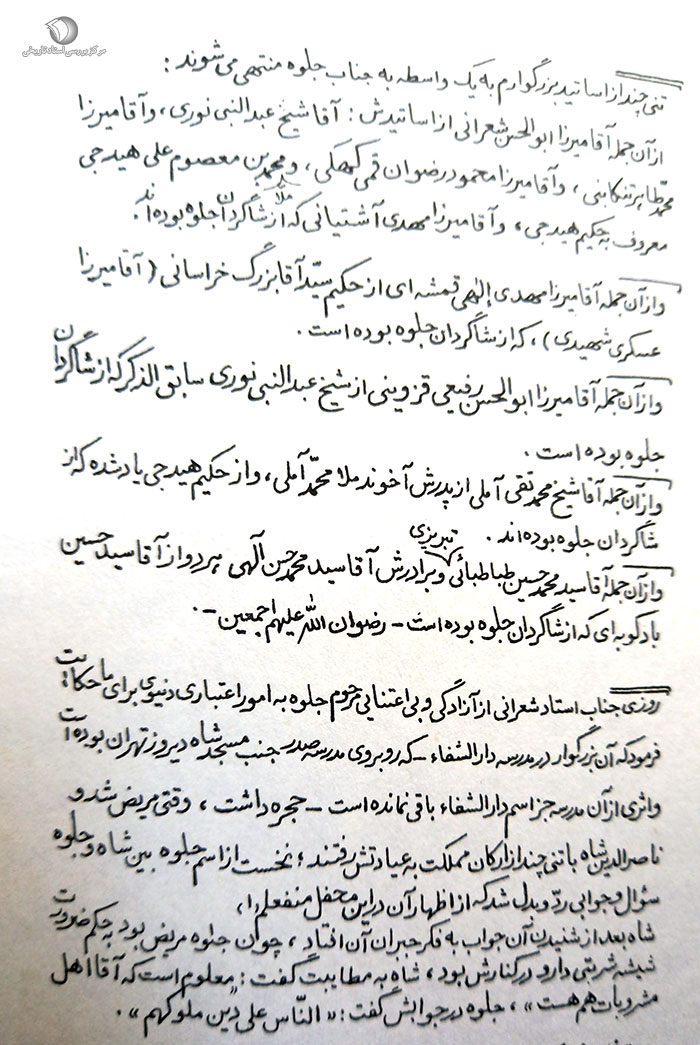 مرکز بررسی اسناد تاریخی
تنی چند از اساتید بزرگوارم به یک واسطه به جناب جلوه منتهی می‌شوند :
از آن جمله آقا میرزا ابوالحسن شعرانی از اساتیدش : آقا شیخ عبدالنبی نوری ، و آقا میرزا
محمد طاهر تنکابنی ، و آقا میرزا محمود رضوان قمی کهکی ، و ملا محمد بن معصوم علی هیدجی
معروف به حکیم هیدجی ، و آقا میرزا مهدی آشتیانی که از شاگردان جلوه بوده‌اند .
و از آن جمله آقا میرزا مهدی إلهی قمشه‌ای از حکیم سیّد آقا بزرگ خراسانی ( آقا میرزا
عسکری شهیدی ) ، که از شاگردان جلوه بوده است .
و از آن جمله آقا میرزا ابوالحسن رفیعی قزوینی از شیخ عبدالنبی نوری سابق الذکر که از شاگردان
جلوه بوده است .
و از آن جمله آقا شیخ محمد تقی آملی از پدرش آخوند ملا محمّد آملی ، و از حکیم هیدجی یاد شده که از
شاگردان جلوه بوده‌اند .
و از آن جمله آقا سید محمد حسین طباطبائی تبریزی و برادرش آقا سید محمد حسن آلهی هر دو از آقا سید حسین
بادکوبه‌ای که از شاگردان جلوه بوده است – رضوان الله علیهم اجمعین – .
روزی جناب استاد شعرانی از آزادگی و بی اعتنایی مرحوم جلوه به امور اعتباری دنیوی برای ما حکایت
فرمود که آن بزرگوار در مدرسه دارالشفاء – که روبروی مدرسه صدر جنب مسجد شاه دیروز تهران بوده است
و اثری از آن مدرسه جز اسم دارالشفاء باقی نمانده است – حجره داشت ، وقتی مریض شد و
ناصرالدین شاه با تنی چند از ارکان مملکت به عیادتش رفتند ؛ نخست از اسم جلوه بین شاه و جلوه
سؤال و جوابی ردّ و بدل شد که از اظهار آن در این محفل منفعلم ،
شاه بعد از شنیدن آن جواب به فکر جبران آن افتاد ، چون جلوه مریض بود به حکم ضرورت
شیشه شربتی دارو در کنارش بود ، شاه به مطایبت گفت : « معلوم است که آقا اهل
مشروبات هم هست » ، جلوه در جوابش گفت : « النّاس علی دین ملوکهم » .